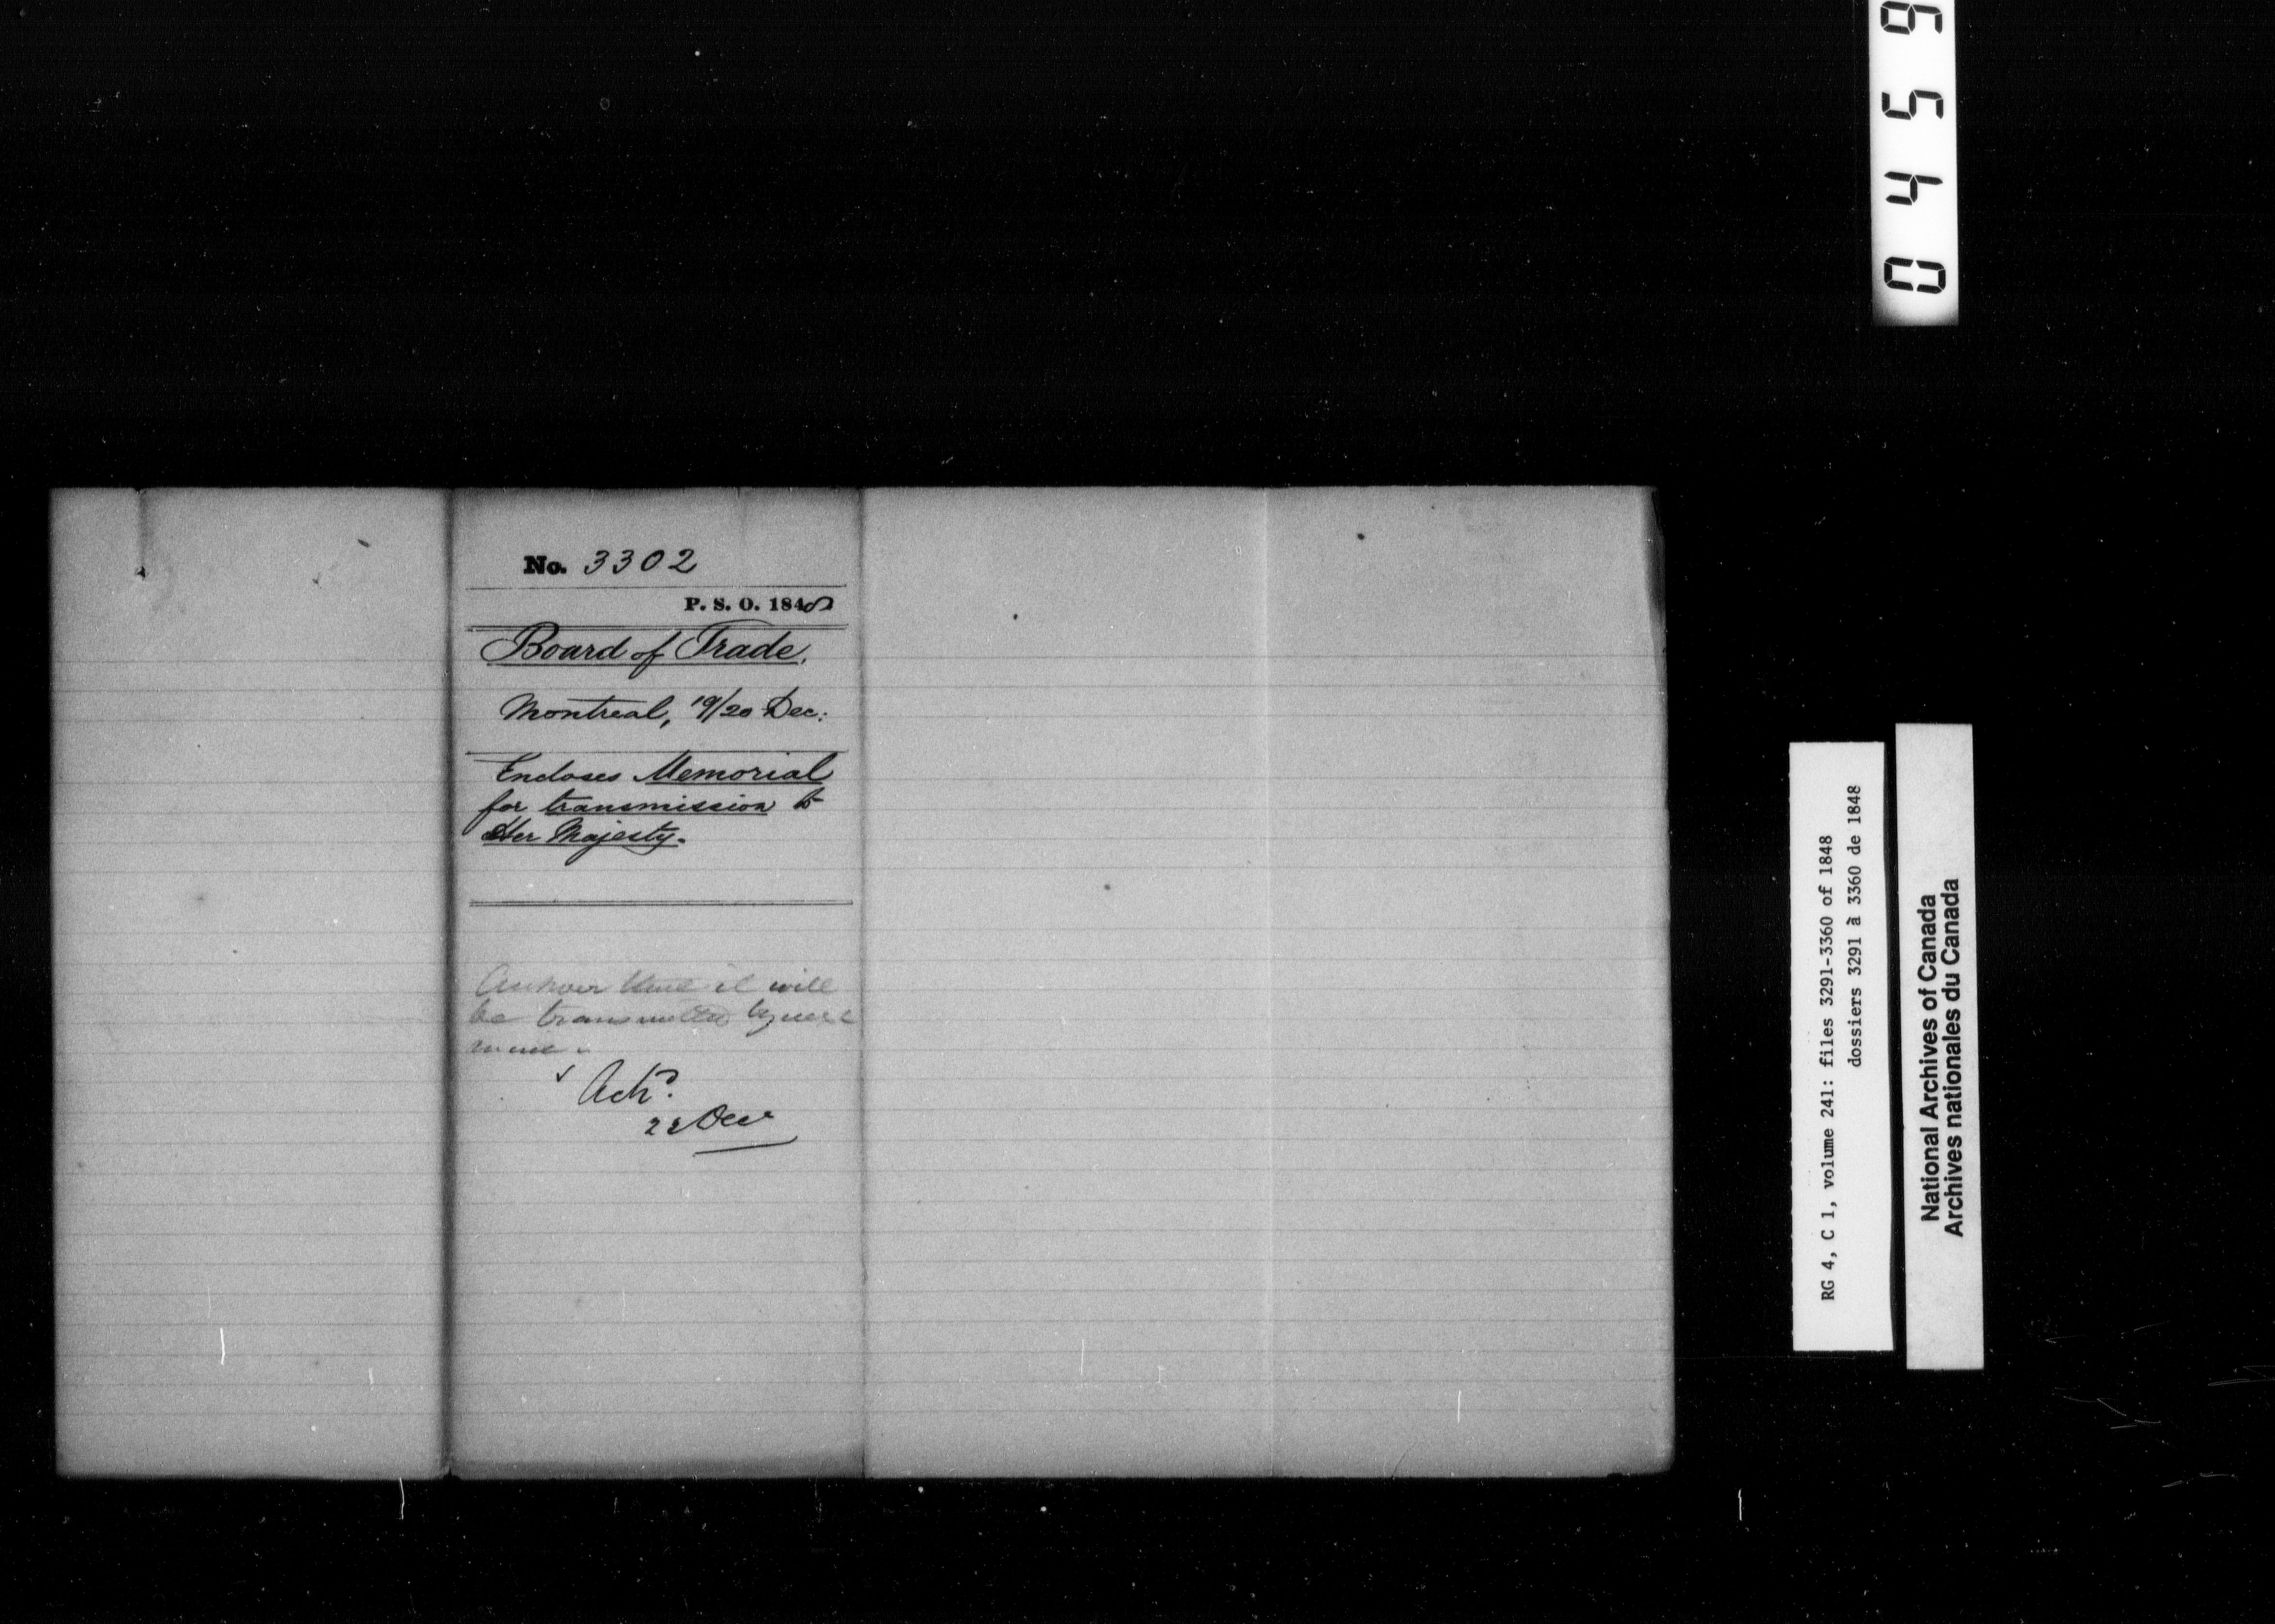 No. 3302
P. S. O. 1848
Board of Trade.
Montreal, 19/20 Dec:
Encloses Memorial
for transmission to
Her Majesty.
Answer that it will
be transmitted by next
Ackd.
22 Dec
0459
RG 4, C 1, volume 241: files 3291-3360 of 1848
dossiers 3291 à 3360 de 1848
National Archives of Canada
Archives nationales du Canada